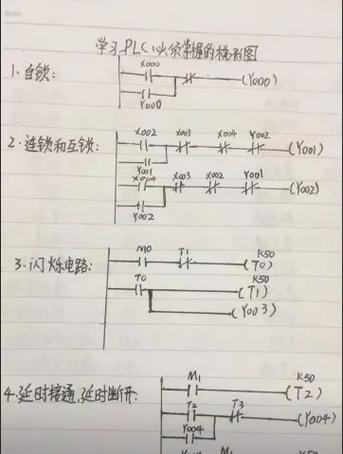 学习PLC必须掌握的梯形图
1、自锁:
X000
(Y000)
Y000
2、连锁和互锁:
X002 X003 X004 Y002
(Y001)
Y001
X004 X003 X002 Y001
(Y002)
Y002
3、闪烁电路:
M0 T1 K50
(T0)
T0 K50
(T1)
(Y003)
4、延时接通、延时断开:
M1 K50
(T2)
T2 T3
(Y004)
Y004
M1 K50